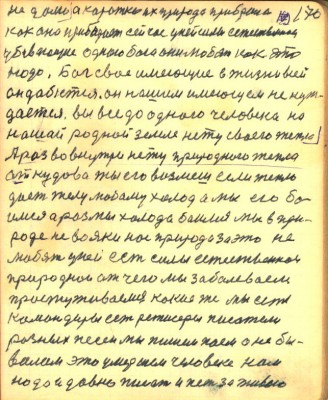 не долю, а коротких природа прибрала 170
как она прибирает сейчас у ней силы естественны
убивающие одного бога они любят как это
надо. Бог свое имеющие в жизни вей
он дается. он нашим имеющем не нуж-
дается. вы все до одного человека на
нашей родной земле нету своего тепла
А раз вовнутри нету природного тепла
откудова ты его возмеш если тепло
дает телу любому холод а мы его бо-
имся а раз мы холода боимся мы в при-
роде не вояки нас природа за это не
любят у ней ест силы естественной
природной от чего мы заболеваем
простуживаемся какие же мы есть
командиры сет режисеры писатели
разных песен мы пишем поем о не бы-
валом это умершем человеке нам
надо и давно писат и пет за живого